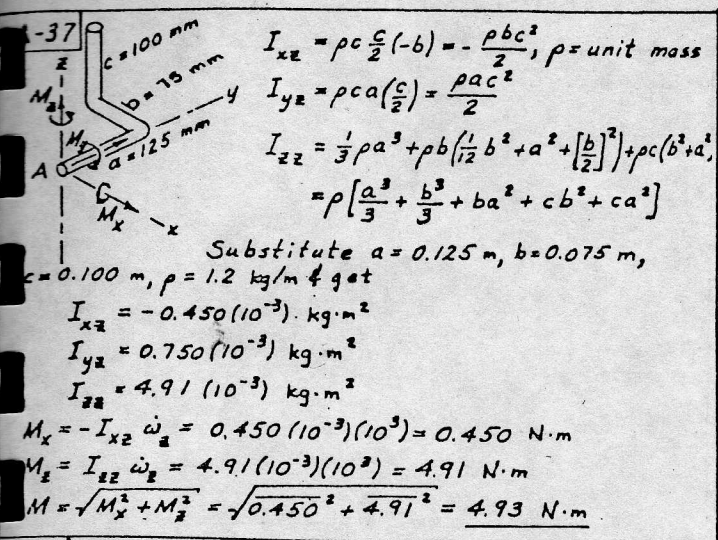 -37
c = 100 mm
b = 75 mm
a = 125 mm
z
y
x
A
M_z
M_y
M_x
I_xz = ρc c/2 (-b) = - ρbc²/2, ρ = unit mass
I_yz = ρca(c/2) = ρac²/2
I_zz = 1/3 ρa³ + ρb(1/12 b² + a² + [b/2]²) + ρc(b² + a²,
= ρ[a³/3 + b³/3 + ba² + cb² + ca²]
Substitute a = 0.125 m, b = 0.075 m,
c = 0.100 m, ρ = 1.2 kg/m & get
I_xz = -0.450(10⁻³). kg·m²
I_yz = 0.750(10⁻³) kg·m²
I_zz = 4.91 (10⁻³) kg·m²
M_x = -I_xz ω̇_z = 0.450 (10⁻³)(10³) = 0.450 N·m
M_z = I_zz ω̇_z = 4.91(10⁻³)(10³) = 4.91 N·m
M = √(M_x² + M_z²) = √(0.450² + 4.91²) = 4.93 N·m